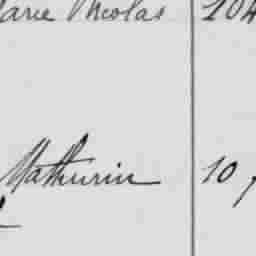 arie Nicolas 104
Mathurin 10